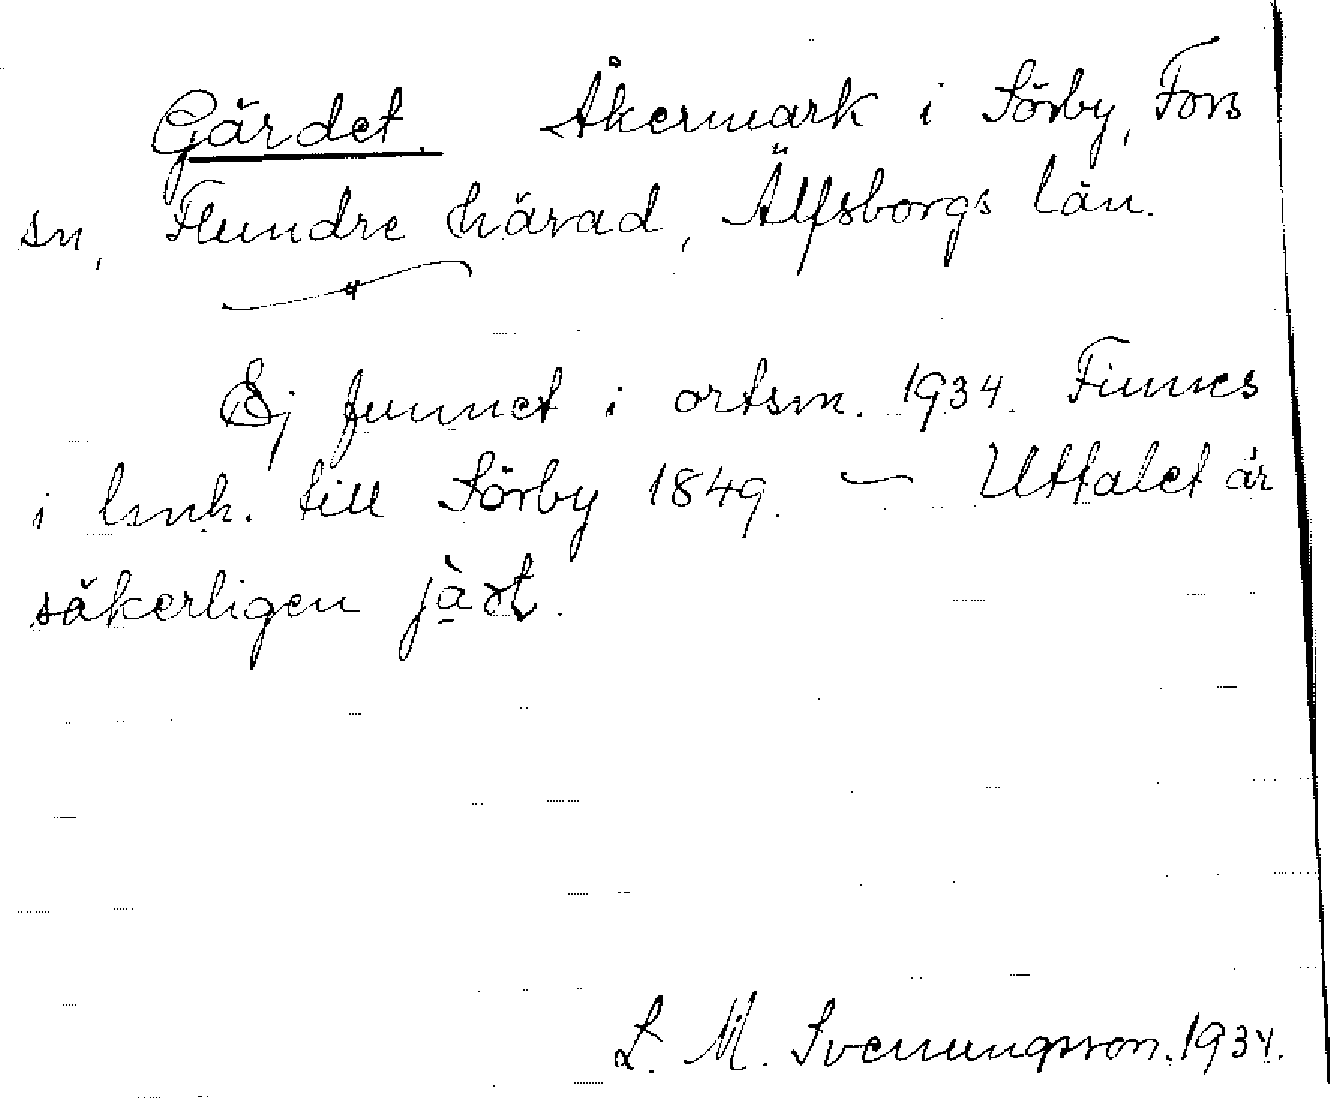 Gärdet. Åkermark i Sörby, Fors
sn, Flundre härad, Älfsborgs län.
Ej funnet i ortsn. 1934. Finnes
i lmh. till Sörby 1849. — Uttalet är
säkerligen
L. M. Svenungsson. 1934.